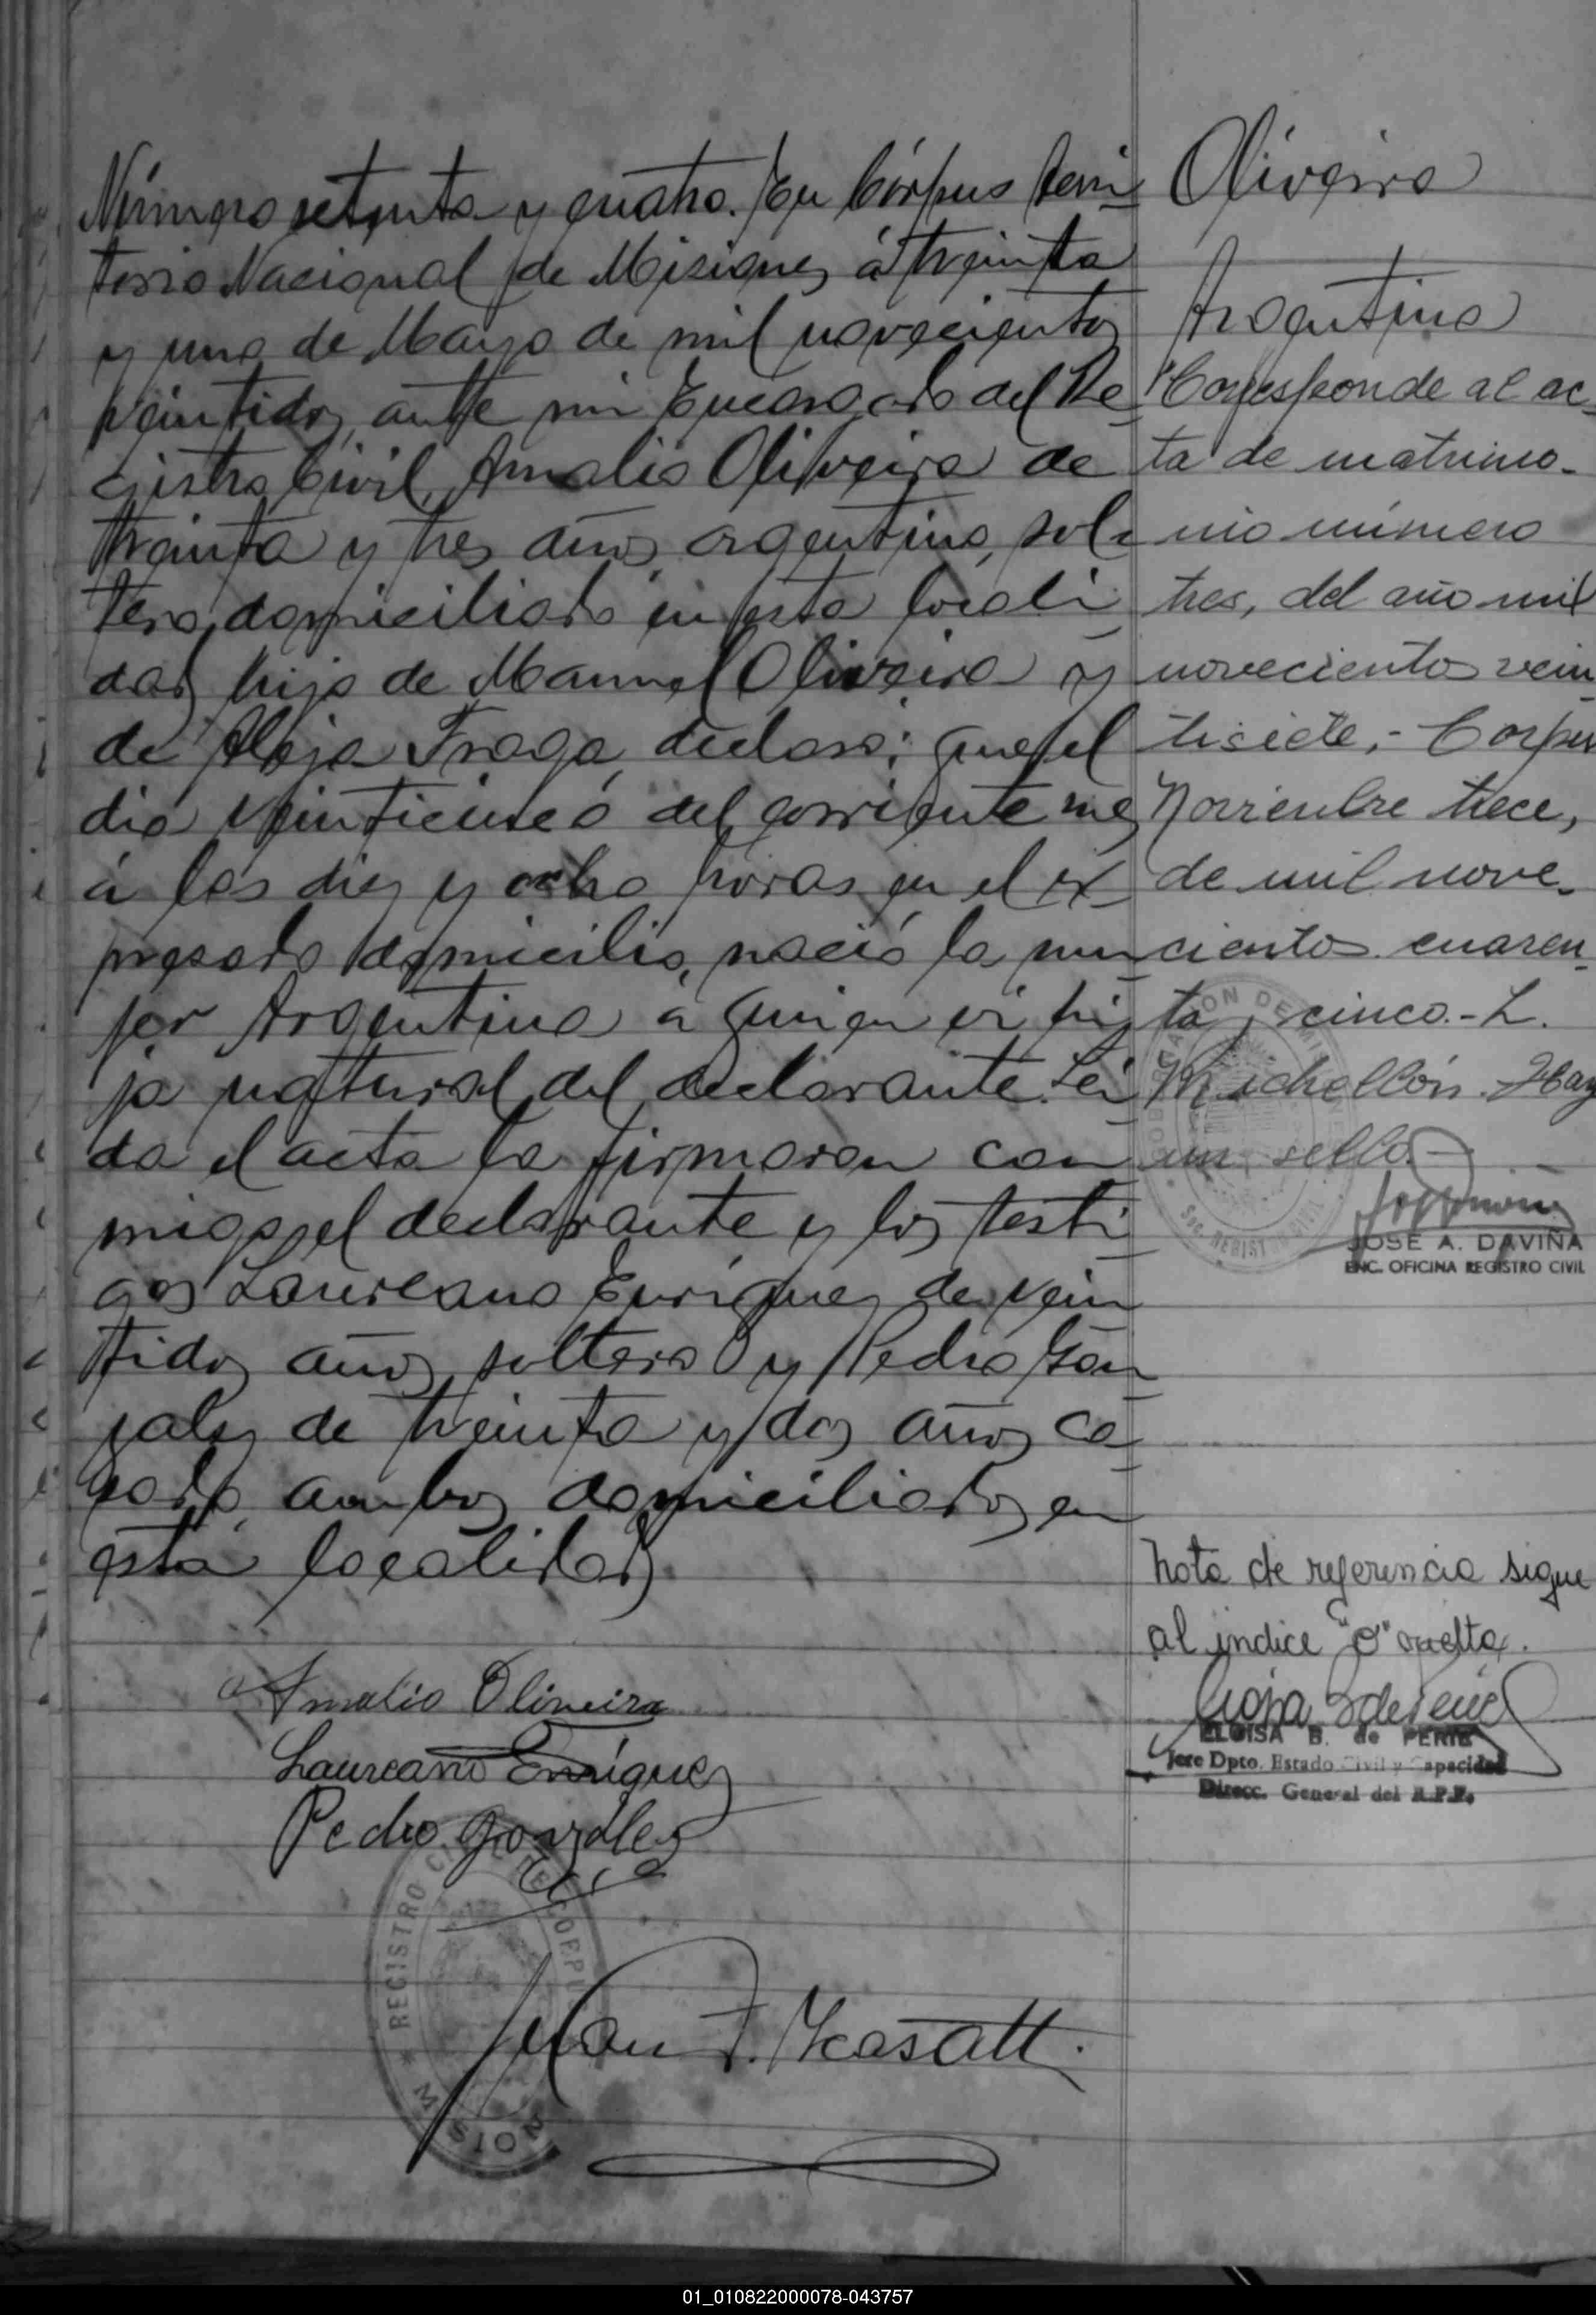 Número setenta y cuatro. En Córpus terri-
torio Nacional de Misiones, á treinta
y uno de Mayo de mil novecientos
veintidos, ante mi Encargado del Re-
gistro Civil, Amalio Oliveira de
treinta y tres años, argentino, sol-
tero, domiciliado en esta locali-
dad, hijo de Manuel Oliveira y
de Aleja Fraga, declaró: que el
dia veinticinco del corriente mes
á las diez y ocho horas en el ex-
presado domicilio, nació la mu-
jer Argentina á quien vi hi-
ja natural del declarante. Lei-
da el acta la firmaron con-
migo, el declarante y los testi-
gos Laureano Enríquez de vein-
tidos años, soltero y Pedro Gon-
zalez de treinta y dos años ca-
sado, ambos domiciliados en
esta localidad
Amalio Oliveira
Laureano Enríquez
Pedro González
Juan F.
REGISTRO CIVIL DE
MISION
Oliveira
Argentina
"Corresponde al ac-
ta de matrimo-
nio número
tres, del año mil
novecientos vein-
tisiete,- Corpus
Noviembre trece,
de mil nove-
cientos cuaren-
ta y cinco.- L.
Michellón. Hay
un sello.-
JOSE A. DAVIÑA
ENC. OFICINA REGISTRO CIVIL
Nota de referencia sigue
al indice "O" vuelta.
ELOISA B. de PERIE
Jefe Dpto. Estado Civil y Capacidad
Direcc. General del R.P.P.
01_010822000078-043757